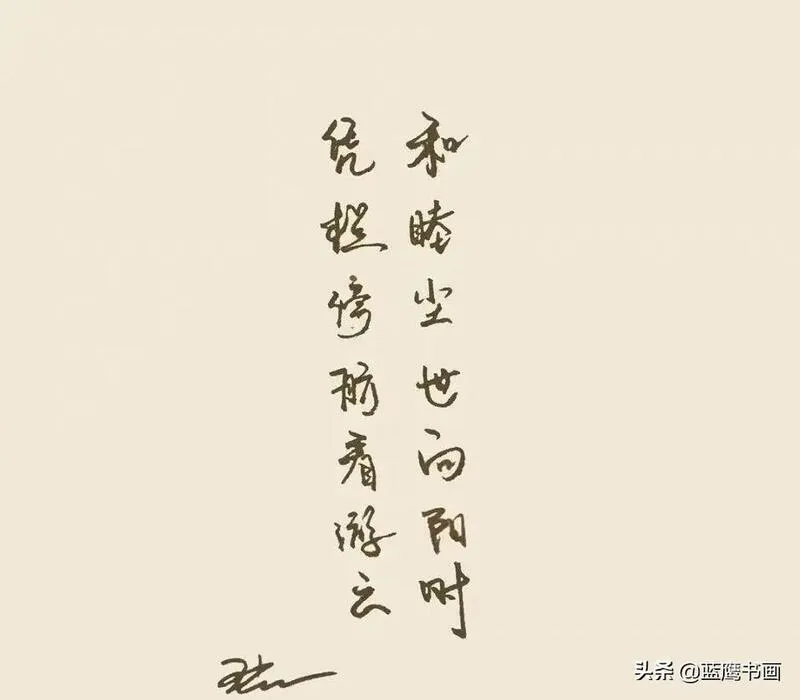 和睦尘世向阳时
凭栏傍舫看游云
头条 @蓝鹰书画